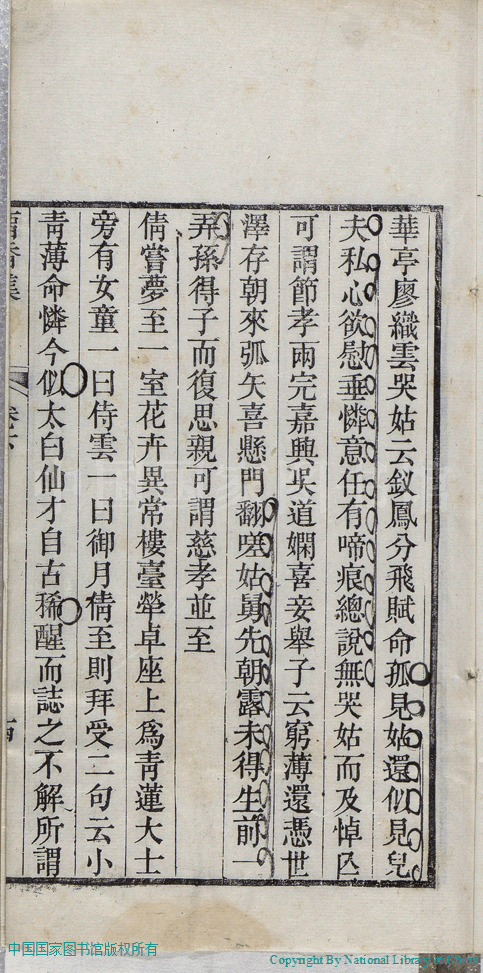 華亭廖織雲哭姑云釵鳳分飛賦命孤見姑還似見兒
夫私心欲慰垂憐意任有啼痕總說無哭姑而及悼亡
可謂節孝兩完嘉興吳道嫻喜妾舉子云窮薄還憑世
澤存朝來弧矢喜懸門翻嗟姑舅先朝露未得生前一
弄孫得子而復思親可謂慈孝並至
倩嘗夢至一室花卉異常樓臺犖卓座上爲青蓮大士
旁有女童一曰侍雲一曰御月倩至則拜受二句云小
青薄命憐今似太白仙才自古稀醒而誌之不解所謂
集
中国国家图书馆版权所有
Copyright By National Library